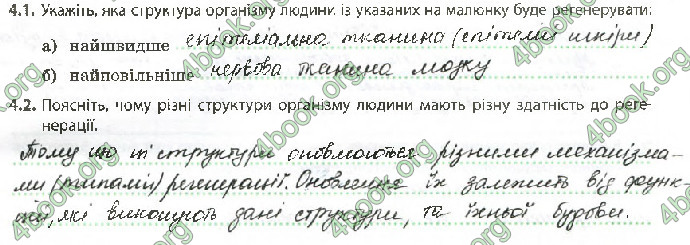 4.1. Укажіть, яка структура організму людини із указаних на малюнку буде регенерувати:
а) найшвидше епітеліальна тканина (епітелій шкіри)
б) найповільніше нервова тканина мозку
4.2. Поясніть, чому різні структури організму людини мають різну здатність до реге-
нерації.
Тому що ці структури оновлюються різними механізма-
ми (типами) регенерації. Оновлення їх залежить від функ-
цій, які виконують дані структури, та їхньої будови.
4book.org